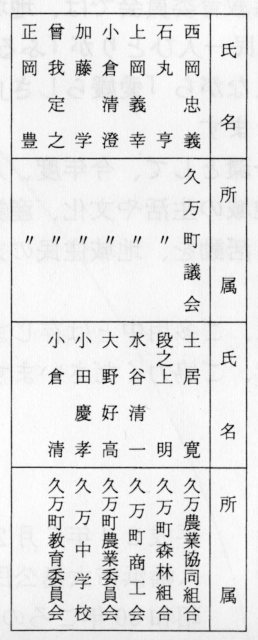 氏名 所属 氏名 所属
西岡忠義 久万町議会 土居寛 久万農業協同組合
石丸亨 〃 段之上明 久万町森林組合
上岡義幸 〃 水谷清一 久万町商工会
小倉清澄 〃 大野好高 久万町農業委員会
加藤学 〃 小田慶孝 久万中学校
曽我定之 〃 小倉清 久万町教育委員会
正岡豊 〃